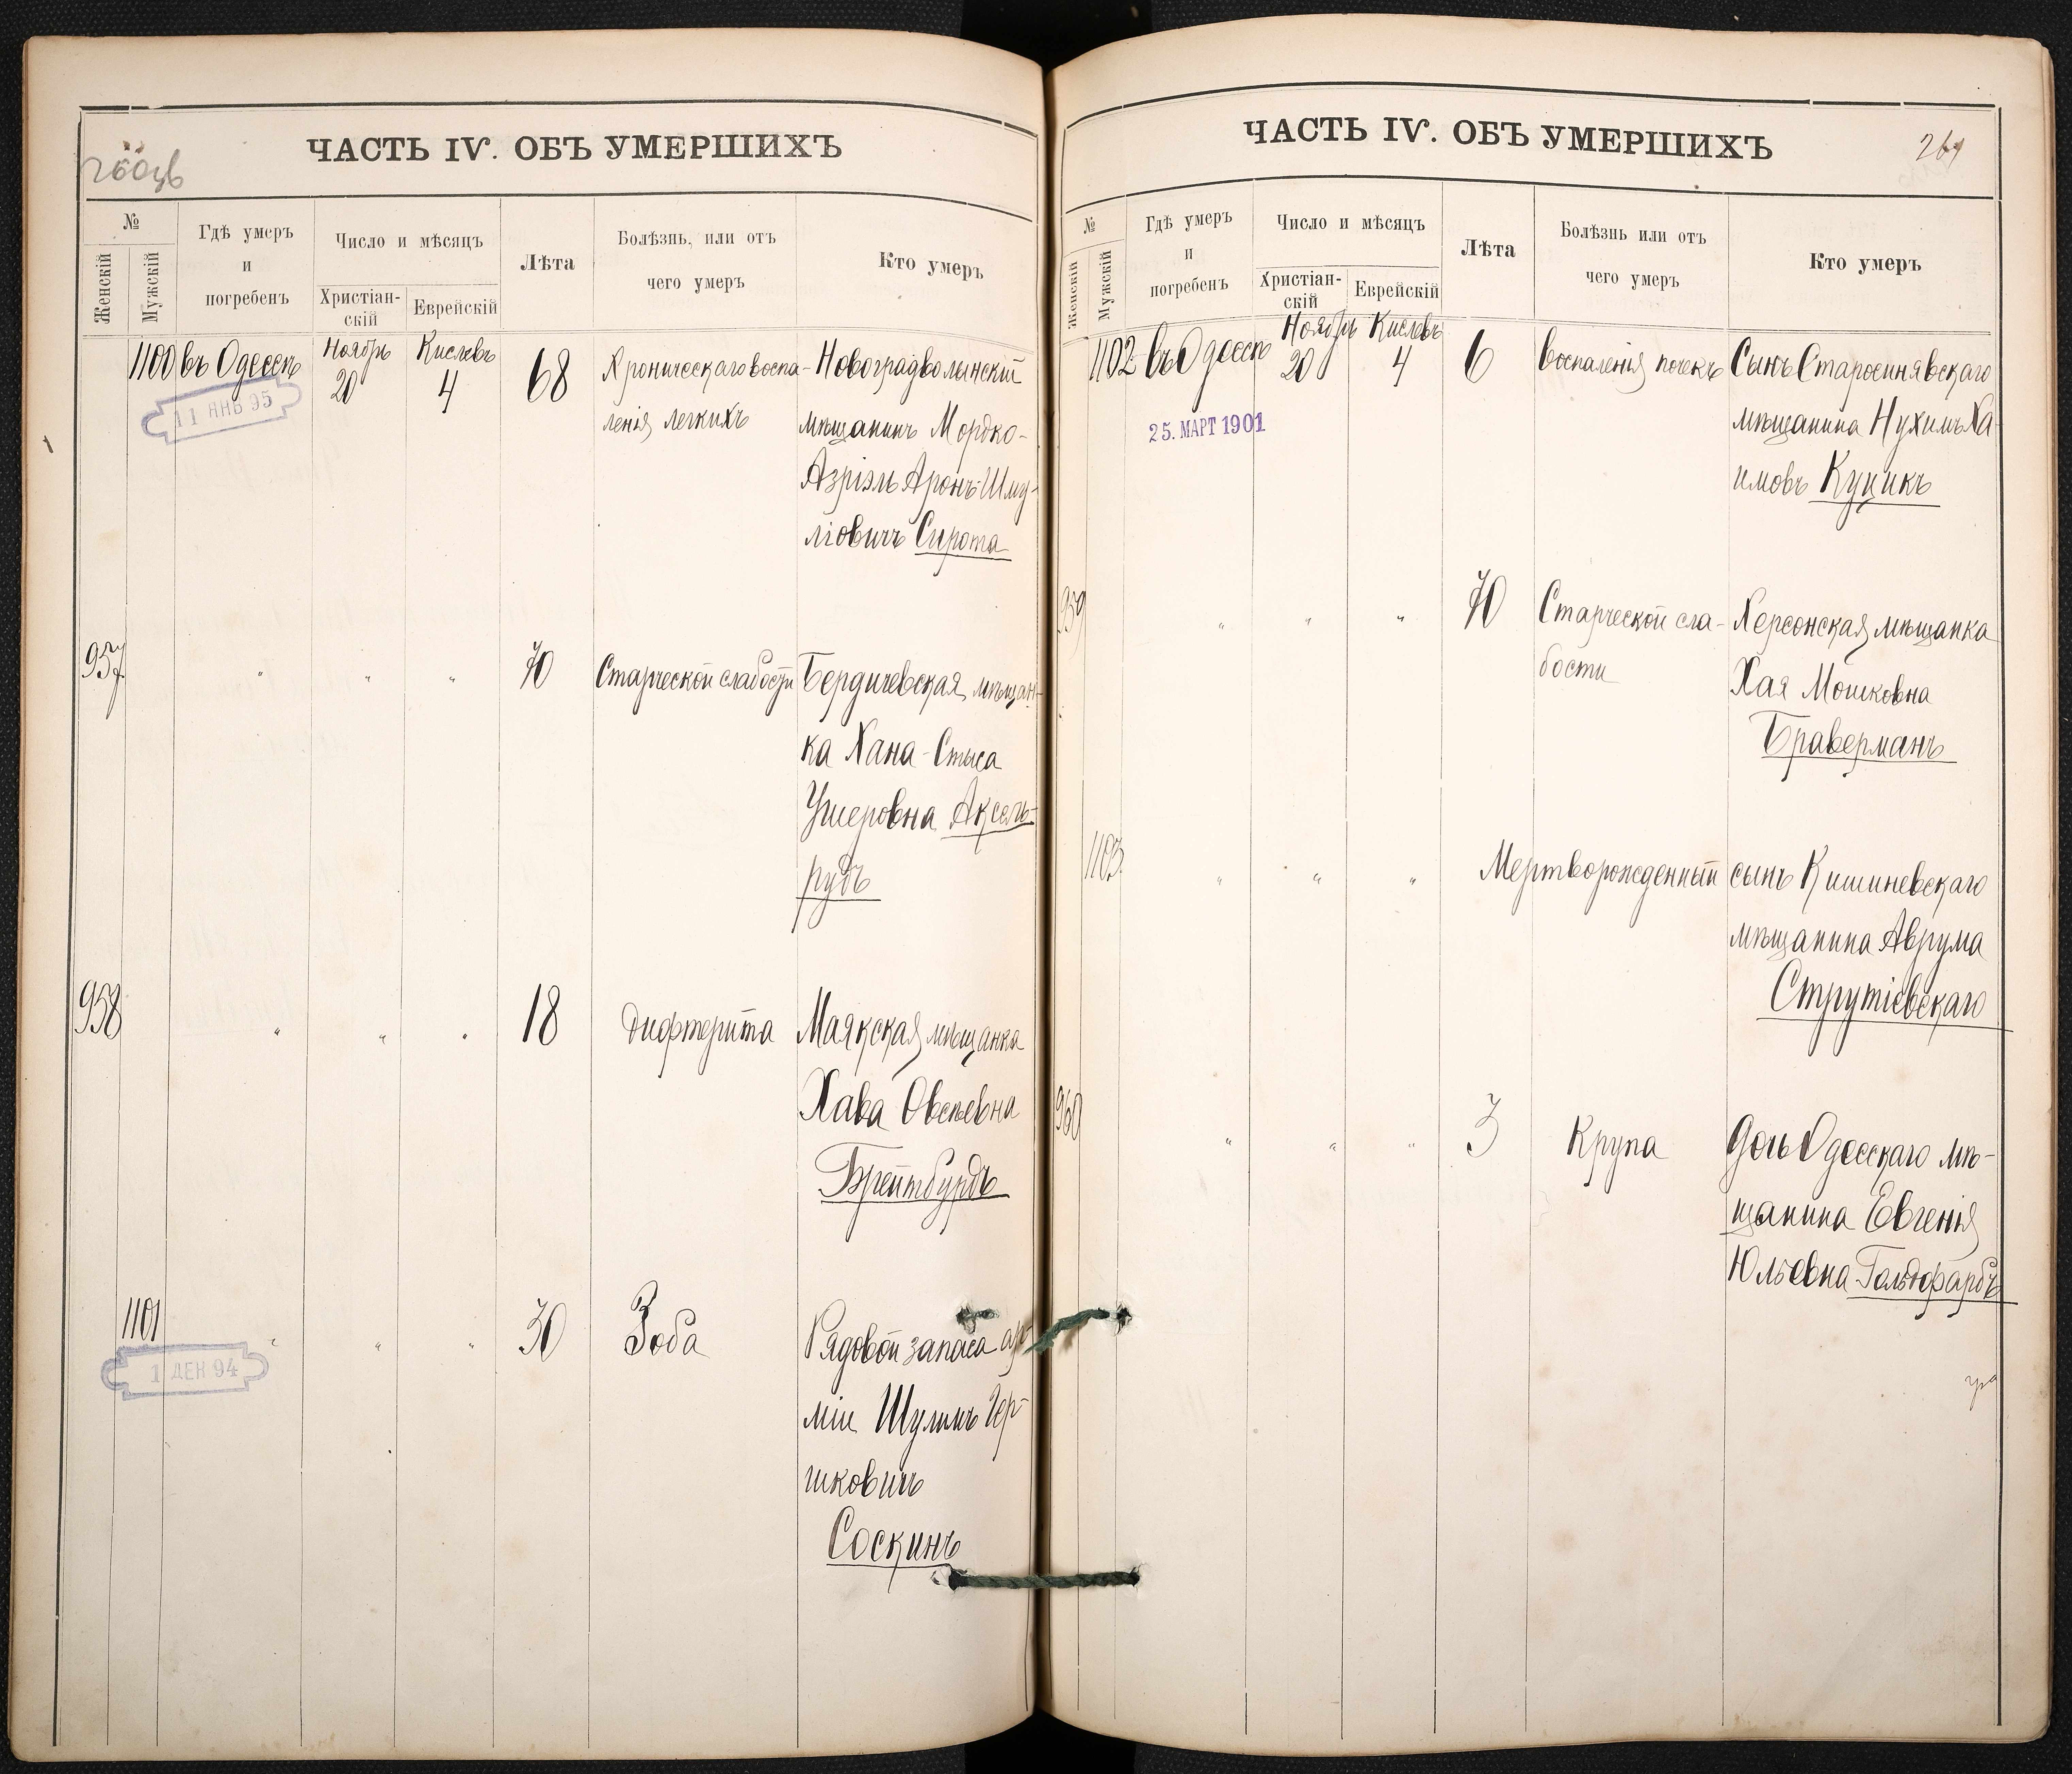 ЧАСТЬ IV. ОБЪ УМЕРШИХЪ
№
Женскій
Мужскій
Гдѣ умеръ
и
погребенъ
Число и мѣсяцъ
Христіан-
скій
Еврейскій
Лѣта
Болѣзнь, или отъ
чего умеръ
Кто умеръ
1100 въ Одессѣ Ноябрь 20 Кислевъ 4 68 Хроническаго воспа- Новоградволынскій
11 ЯНВ 95
ленія легкихъ мѣщанинъ Мордко-
Азріэль Аронъ-Шму-
ліовичъ Сирота
957 " " " 70 Старческой слабости Бердичевская мѣщан-
ка Хана-Стыса
Ушеровна Аксель-
рудъ
958 " " " 18 Дифтерита Маякская мѣщанка
Хава Овсѣевна
Брейтбурдъ
1101 " " " 30 Зоба Рядовой запаса ар-
1 ДЕК 94
міи Шулимъ Гер-
шковичъ
Соскинъ
ЧАСТЬ IV. ОБЪ УМЕРШИХЪ
261
№
Женскій
Мужскій
Гдѣ умеръ
и
погребенъ
Число и мѣсяцъ
Христіан-
скій
Еврейскій
Лѣта
Болѣзнь или отъ
чего умеръ
Кто умеръ
1102 въ Одессѣ Ноябрь 20 Кислевъ 4 6 Воспаленія почекъ Сынъ Старосинявскаго
25. МАРТ 1901
мѣщанина Нухимъ Ха-
имовъ Куцикъ
959 " " " 70 Старческой сла- Херсонская мѣщанка
бости Хая Мошковна
Браверманъ
1103 " " " Мертворожденный сынъ Кишиневскаго
мѣщанина Аврума
Струтіевскаго
960 " " " 3 Крупа Дочь Одесскаго мѣ-
щанина Евгенія
Юльевна Гольдфарбъ